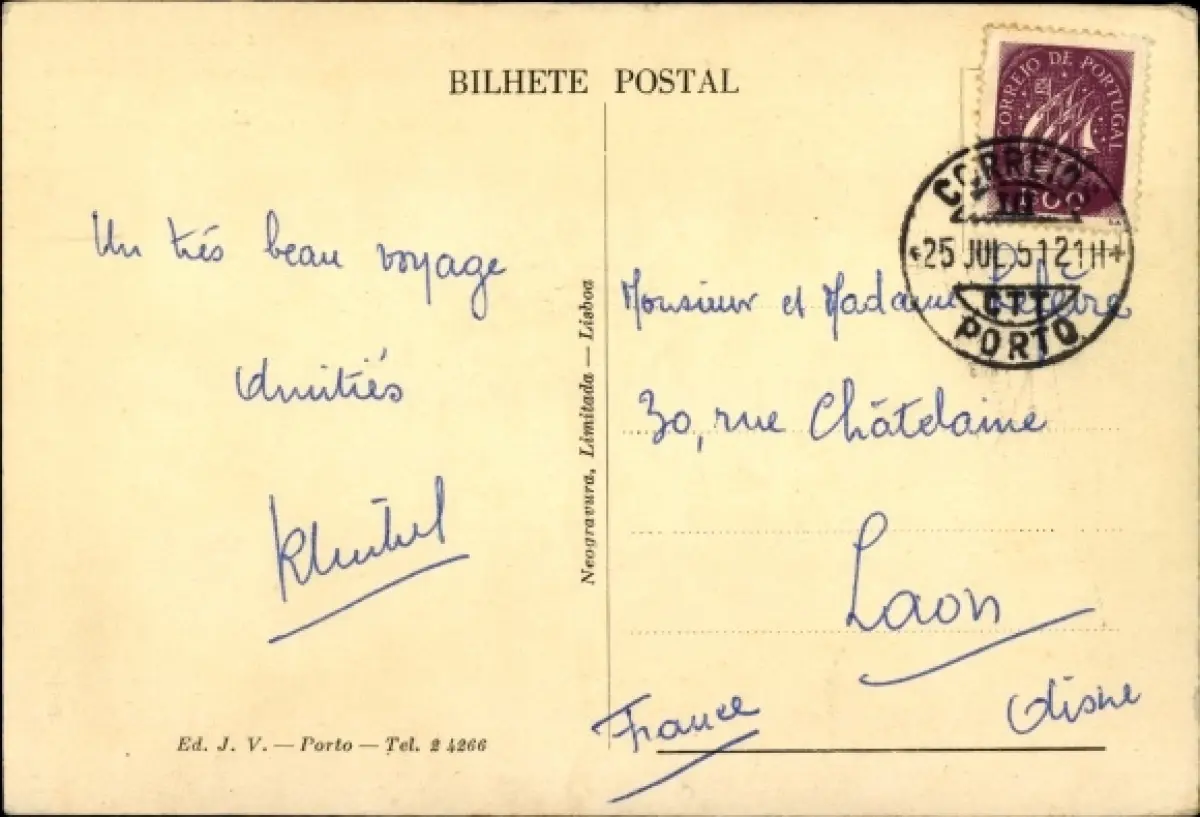 BILHETE POSTAL
CORREIO DE PORTUGAL
CORREIOS
25 JUL 51 21H
CTT
PORTO
Un très beau voyage
Amitiés
Monsieur et Madame Lefèvre
30, rue Châtelaine
Laon
Aisne
France
Neogravura, Limitada — Lisboa
Ed. J. V. — Porto — Tel. 2 4266